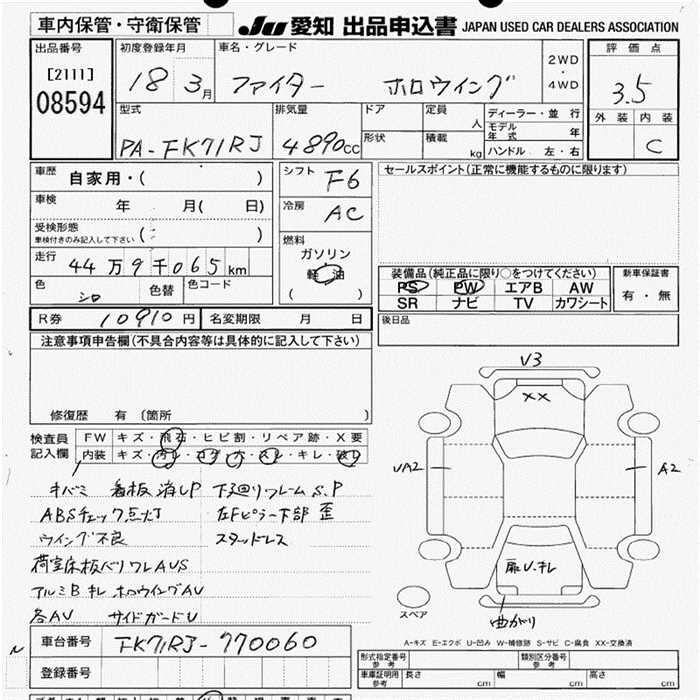 車内保管・守衛保管 JU 愛知 出品申込書 JAPAN USED CAR DEALERS ASSOCIATION
出品番号 初度登録年月 車名・グレード 2WD・4WD 評価点
[2111] 18 3月 ファイター ホロウイング 3.5
08594
型式 排気量 ドア 定員 人 ディーラー・並行 外装 内装
PA-FK71RJ 4890cc 形状 積載 kg モデル年式 年 C
ハンドル 左・右
車歴 自家用・( ) シフト F6 セールスポイント(正常に機能するものに限ります)
車検 年 月( 日) 冷房 AC
受検形態 ( )
車検付きのみ記入して下さい
燃料 ガソリン
走行 44万9千065km 軽油 装備品(純正品に限り○をつけてください) 新車保証書
( ) PS PW エアB AW 有・無
色 シロ 色替 色コード SR ナビ TV カワシート
R券 10910円 名変期限 月 日 後日品
注意事項申告欄(不具合内容等は具体的に記入して下さい)
V3
XX
修復歴 有 (箇所 )
検査員 FW キズ・飛石・ヒビ割・リペア跡・X要
記入欄 内装 キズ・汚レ・コゲ・穴・スレ・キレ・破レ
UA2 A2
キバミ 看板消しP 下廻りフレームS.P
ABSチェック点灯 左Fピラー下部 歪
ウイング不良 スタッドレス
荷室床板バリワレAUS 扉U.キレ
アルミB キレ ホロウイングAU
各AU サイドガードU
スペア 曲がり
A-キズ E-エクボ U-凹み W-補修跡 S-サビ C-腐食 XX-交換済
車台番号 FK71RJ-770060
形式指定番号 参考 類別区分番号 参考
登録番号 車庫証明用 参考 長さ cm 幅 cm 高さ cm